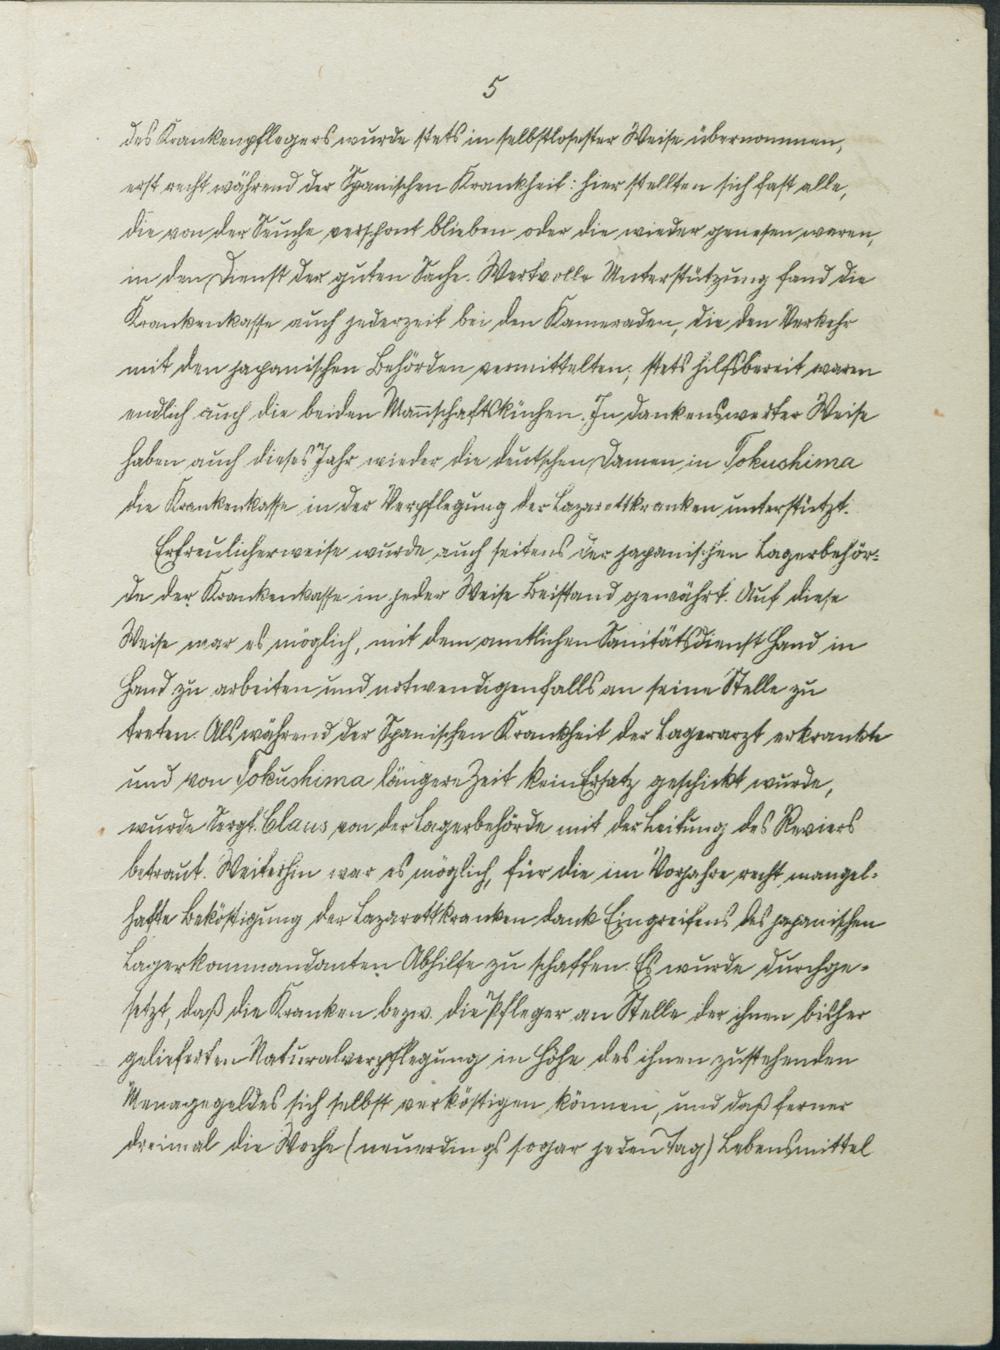 5
des Krankenpflegers wurde stets in selbstlosester Weise übernommen,
erst recht während der Spanischen Krankheit: hier stellten sich fast alle,
die von der Seuche verschont blieben oder die wieder genesen waren,
in den Dienst der guten Sache. Wertvolle Unterstützung fand die
Krankenkasse auch jederzeit bei den Kameraden, die den Verkehr
mit den japanischen Behörden vermittelten; stets hilfsbereit waren
endlich auch die beiden Mañschaftsküchen. In dankenswerter Weise
haben auch dieses Jahr wieder die deutschen Damen in Tokushima
die Krankenkasse in der Verpflegung der Lazarettkranken unterstützt.
Erfreulicherweise wurde auch seitens der japanischen Lagerbehör-
de der Krankenkasse in jeder Weise Beistand gewährt. Auf diese
Weise war es möglich, mit dem amtlichen Sanitätsdienst Hand in
Hand zu arbeiten und notwendigenfalls an seine Stelle zu
treten. Als während der Spanischen Krankheit der Lagerarzt erkrankte
und von Tokushima längere Zeit kein Ersatz geschickt wurde,
wurde Sergt. Claus von der Lagerbehörde mit der Leitung des Reviers
betraut. Weiterhin war es möglich, für die im Vorjahre recht mangel-
hafte Beköstigung der Lazarettkranken dank Eingreifens des japanischen
Lagerkommandanten Abhilfe zu schaffen. Es wurde durchge-
setzt, daß die Kranken bezw. die Pfleger an Stelle der ihnen bisher
gelieferten Naturalverpflegung in Höhe des ihnen zustehenden
Menagegeldes sich selbst verköstigen können, und daß ferner
dreimal die Woche (neuerdings sogar jeden Tag) Lebensmittel